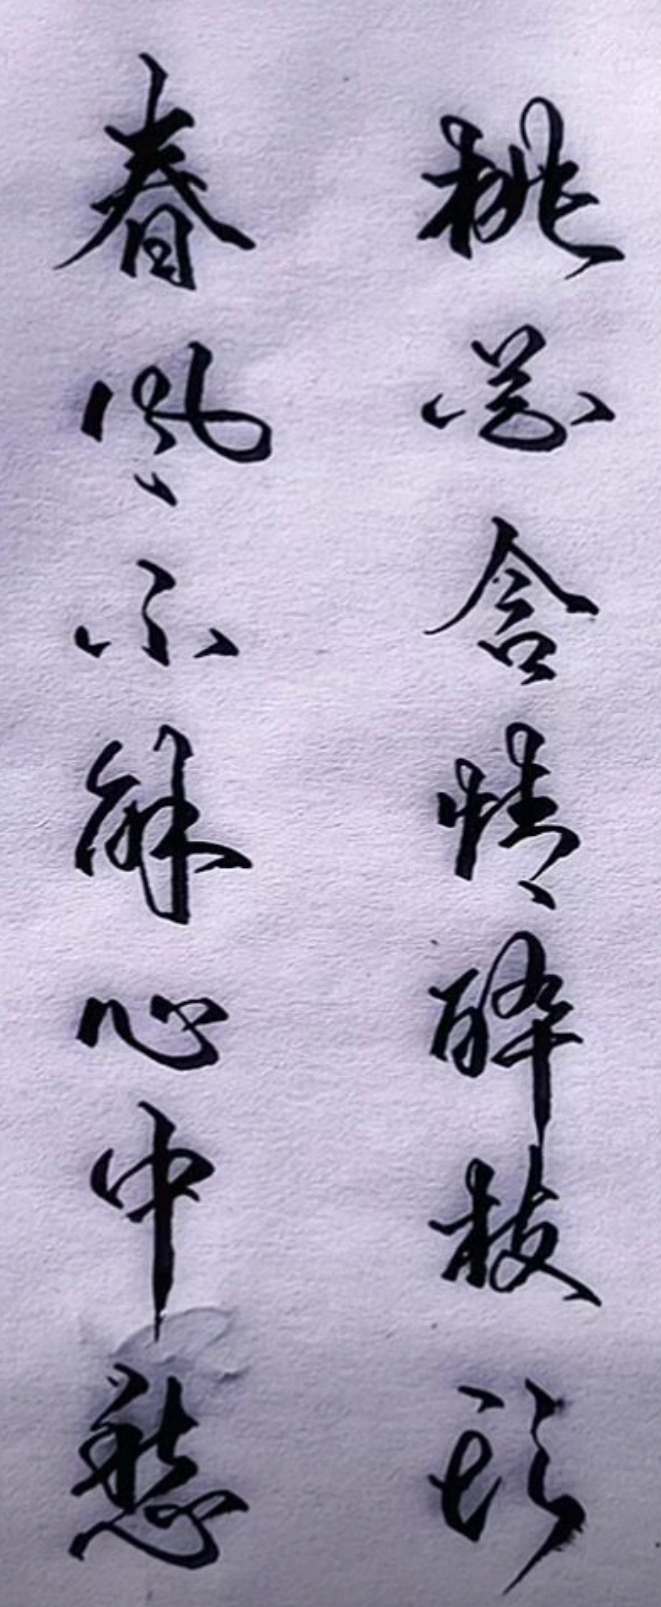 桃花含情醉枝頭
春風不解心中愁